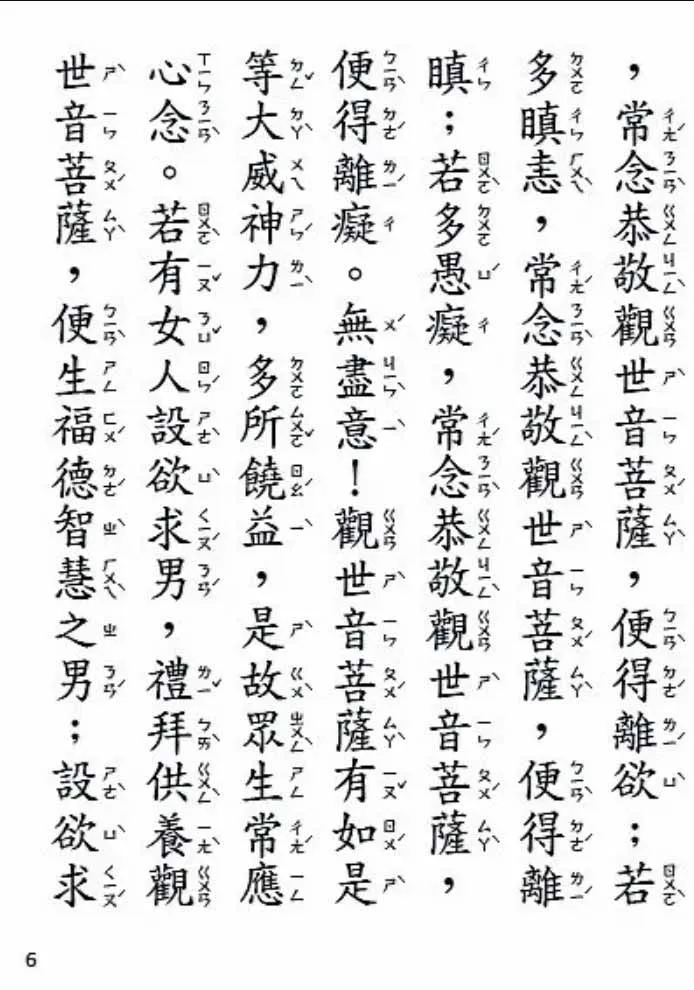 ，常念恭敬觀世音菩薩，便得離欲；若
多瞋恚，常念恭敬觀世音菩薩，便得離
瞋；若多愚癡，常念恭敬觀世音菩薩，
便得離癡。無盡意！觀世音菩薩有如是
等大威神力，多所饒益，是故眾生常應
心念。若有女人設欲求男，禮拜供養觀
世音菩薩，便生福德智慧之男；設欲求
6